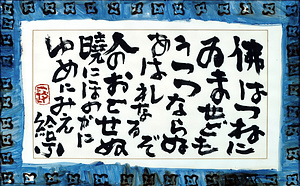 佛はつねに
ゐませども
うつつならぬぞ
あはれなる
人のおとせぬ
暁にほのかに
ゆめにみえ給ふ